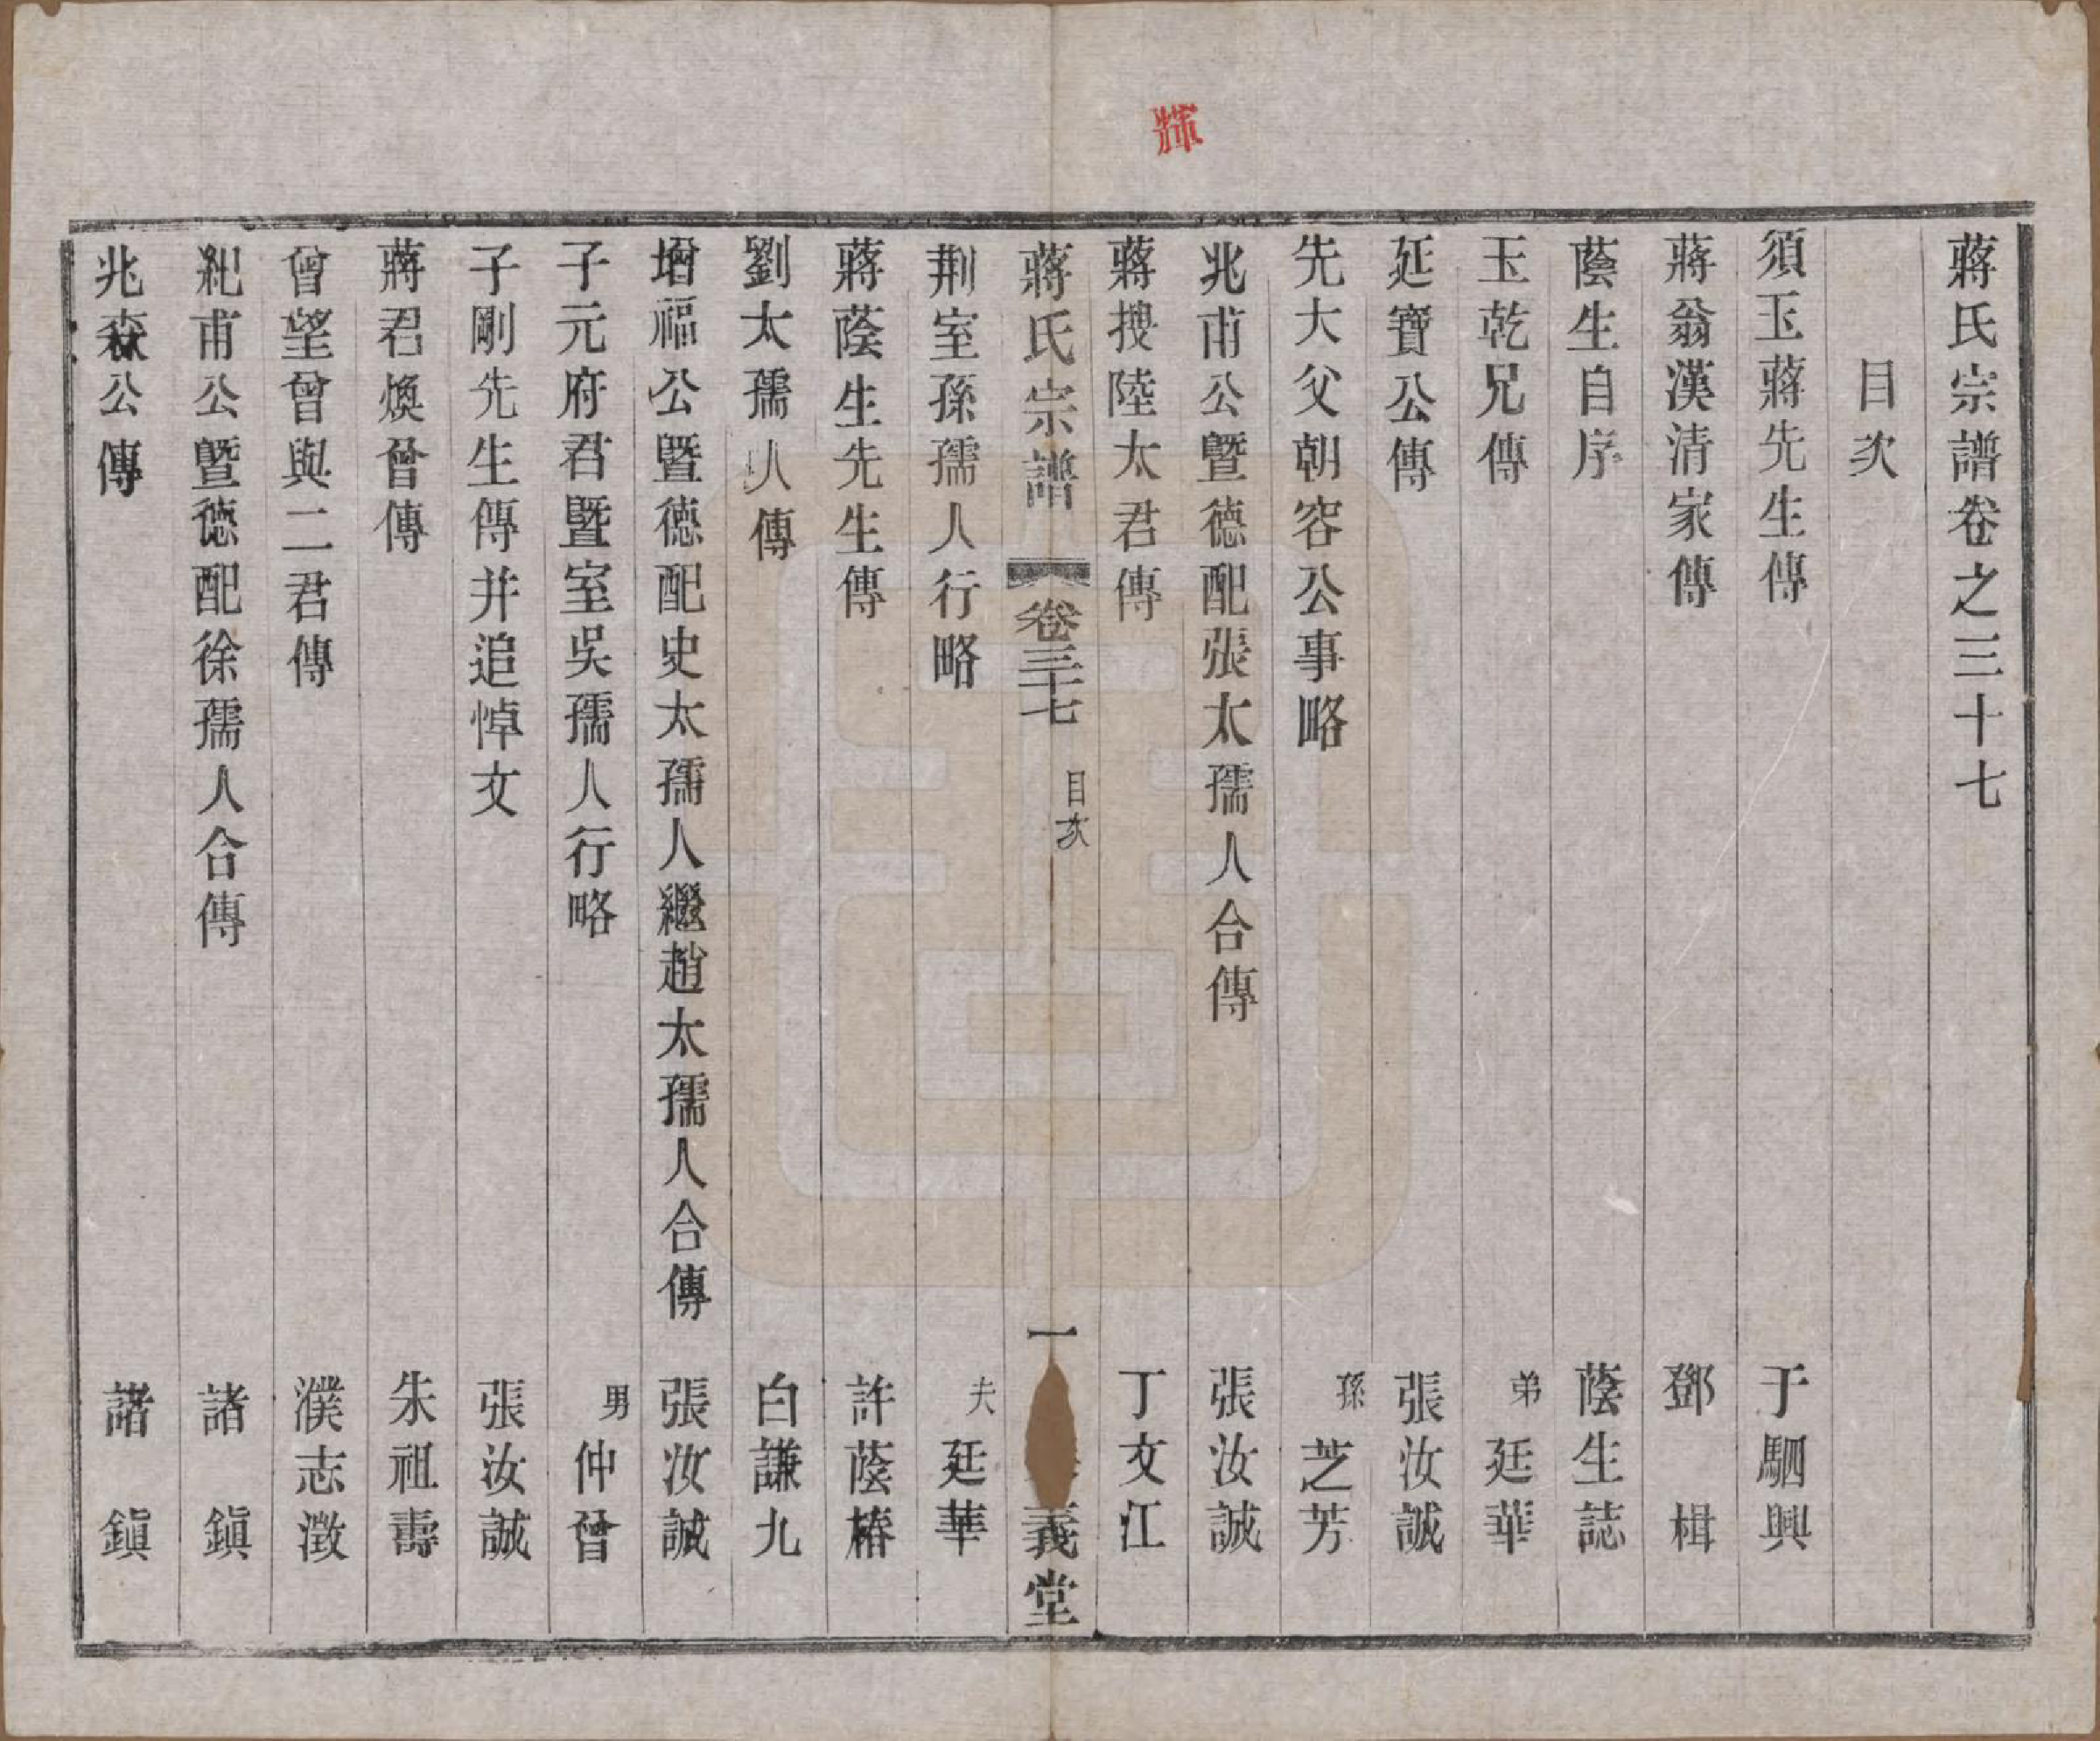 蔣氏宗譜卷之三十七
目次
須玉蔣先生傳 于駟興
蔣翁漢清家傳 鄧楫
蔭生自序 蔭生誌
玉乾兄傳 弟廷華
延寶公傳 張汝誠
先大父朝容公事略 孫芝芳
兆甫公曁德配張太孺人合傳 張汝誠
蔣搜陸太君傳 丁文江
蔣氏宗譜 卷三十七 目次 一 義堂
荆室孫孺人行略 夫廷華
蔣蔭生先生傳 許蔭椿
劉太孺人傳 白謙九
增福公曁德配史太孺人繼趙太孺人合傳 張汝誠
子元府君曁室吳孺人行略 男仲曾
子剛先生傳并追悼文 張汝誠
蔣君煥曾傳 朱祖壽
曾望曾與二君傳 濮志澂
紀甫公曁德配徐孺人合傳 諸鎭
兆森公傳 諸鎭